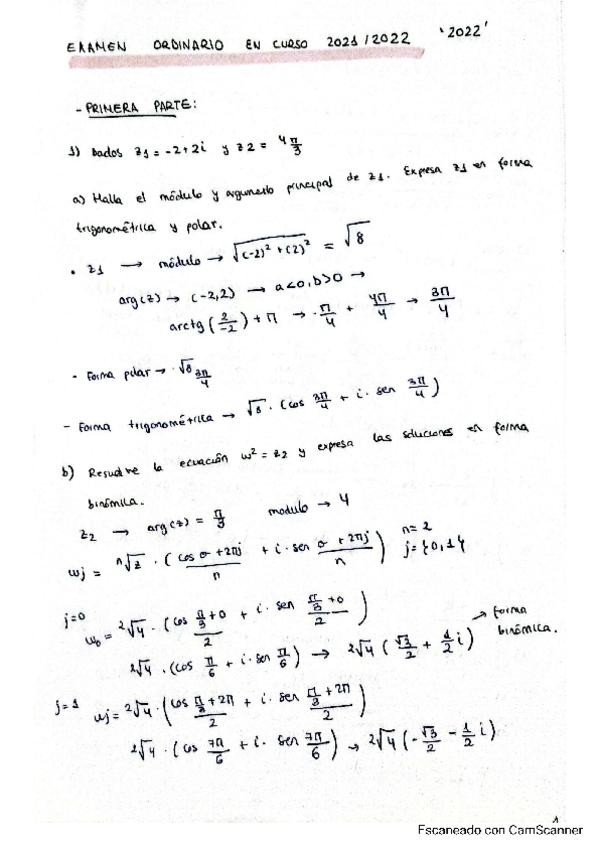 EXAMEN ORDINARIO EN CURSO 2021/2022 '2022'
- PRIMERA PARTE:
1) Dados z1 = -2+2i y z2 = 4 π/3
a) Halla el módulo y argumento principal de z1. Expresa z1 en forma
trigonométrica y polar.
• z1 → módulo → √((-2)² + (2)²) = √8
arg(z) → (-2,2) → a<0, b>0 →
arctg(2/-2) + π → -π/4 + 4π/4 → 3π/4
- Forma polar → √8 3π/4
- Forma trigonométrica → √8 · (cos 3π/4 + i · sen 3π/4)
b) Resuelve la ecuación w² = z2 y expresa las soluciones en forma
binómica.
z2 → arg(z) = π/3 modulo → 4
wj = ⁿ√z · (cos σ+2πj/n + i · sen σ+2πj/n) n=2
j={0,1}
j=0
w0 = ²√4 · (cos π/3+0/2 + i · sen π/3+0/2)
²√4 · (cos π/6 + i · sen π/6) → ²√4 (√3/2 + 1/2 i) → forma
binómica.
j=1 wj = ²√4 · (cos π/3+2π/2 + i · sen π/3+2π/2)
²√4 · (cos 7π/6 + i · sen 7π/6) → ²√4 (-√3/2 - 1/2 i)
Escaneado con CamScanner